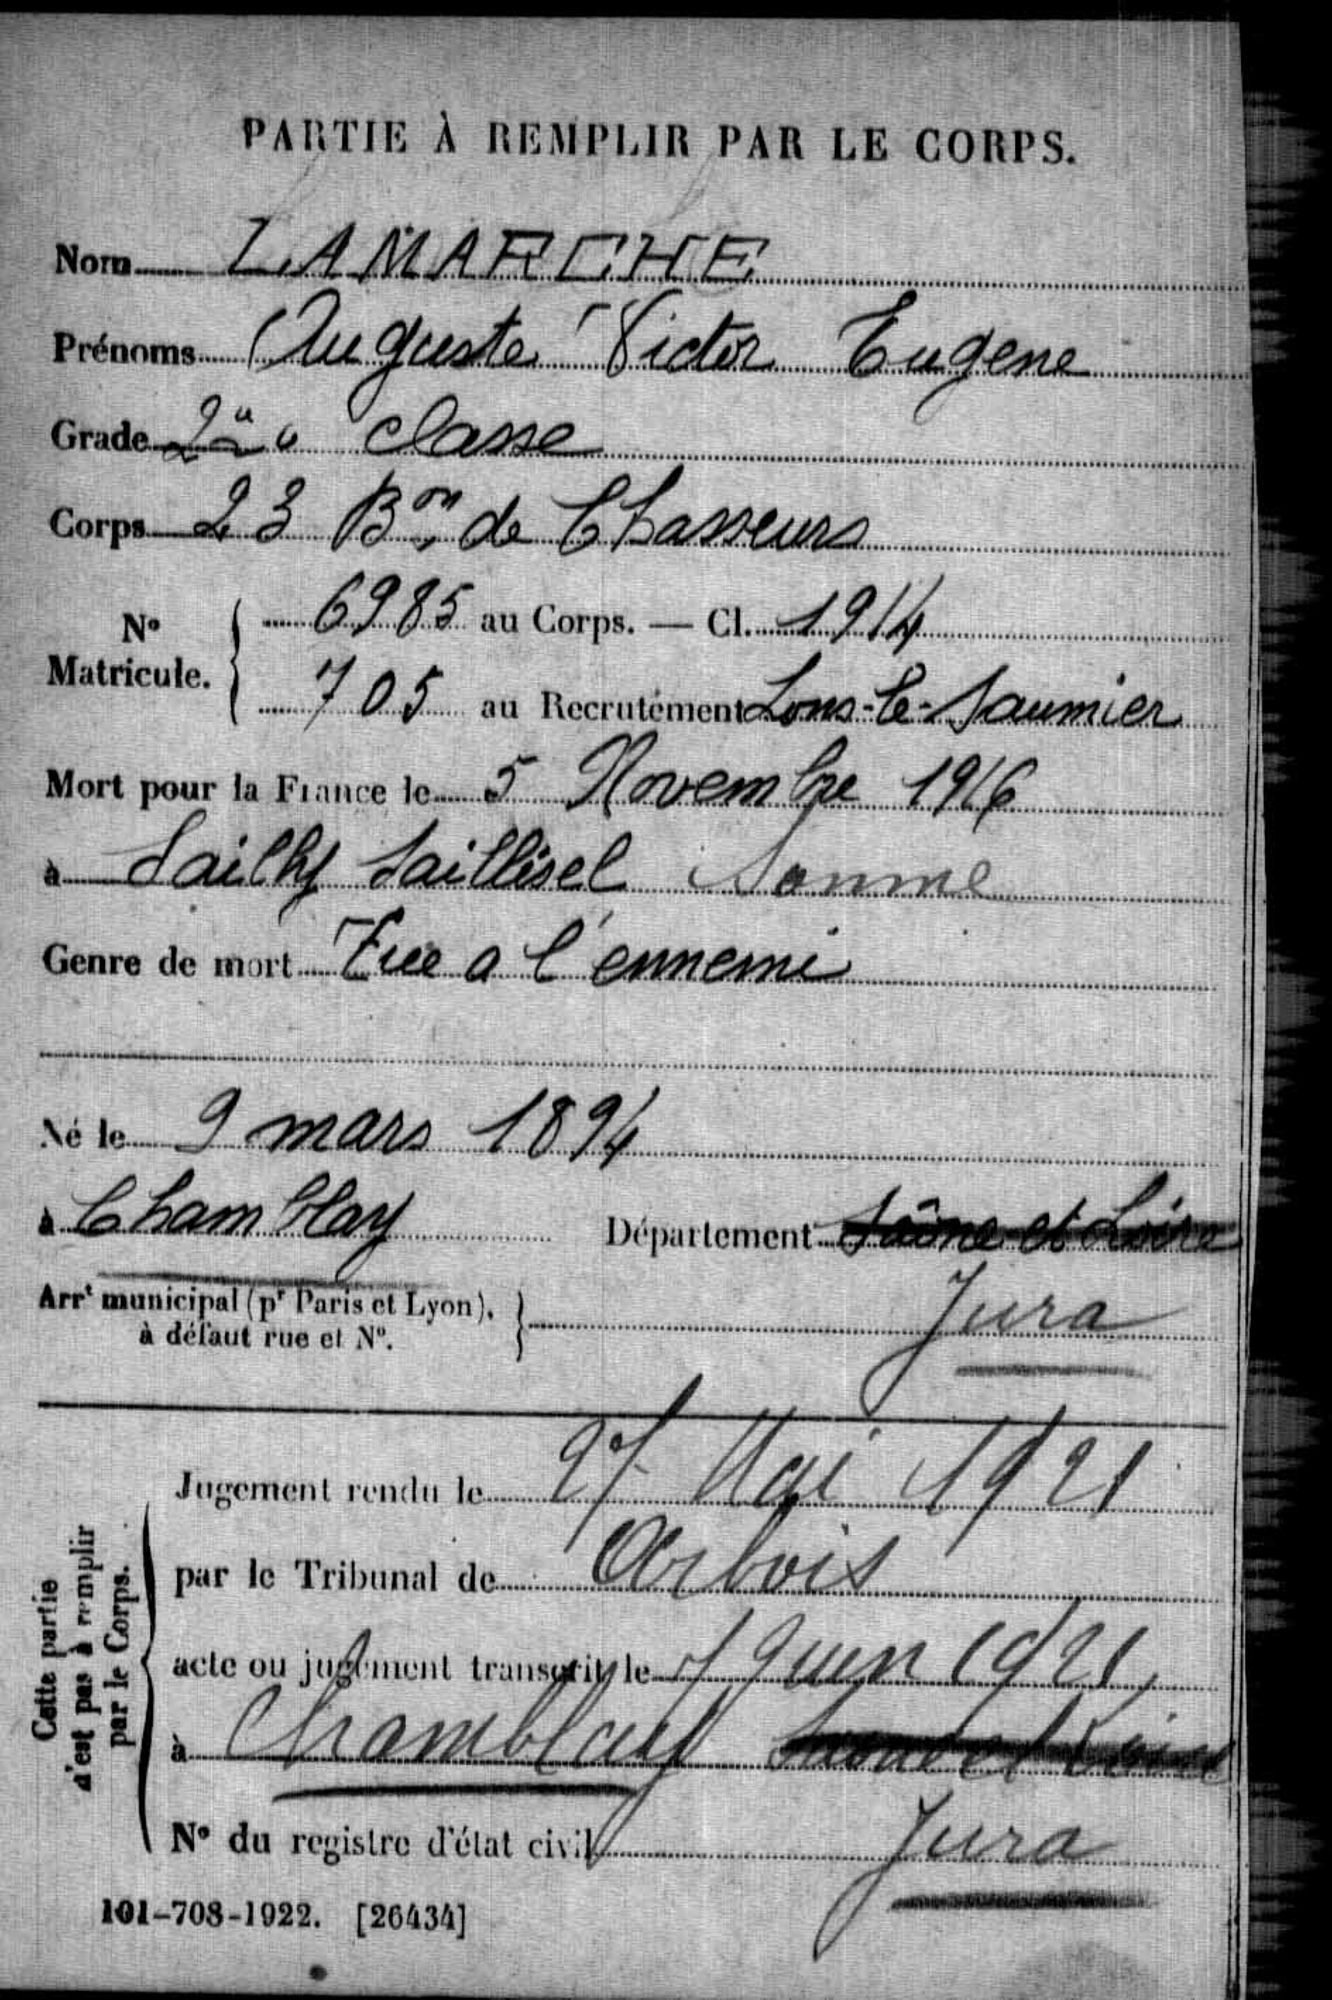 PARTIE À REMPLIR PAR LE CORPS.
Nom LAMARCHE
Prénoms Auguste Victor Eugene
Grade 2e classe
Corps 23 Bon de Chasseurs
No Matricule. 6985 au Corps. — Cl. 1914
705 au Recrutement Lons-le-Saumier
Mort pour la France le 5 Novembre 1916
à Sailly Saillisel Somme
Genre de mort Tué a l'ennemi
Né le 9 mars 1894
à Chamblay Département Saône et Loire
Arrt municipal (pr Paris et Lyon),
à défaut rue et No. Jura
Cette partie n'est pas à remplir par le Corps.
Jugement rendu le 27 Mai 1921
par le Tribunal de Arbois
acte ou jugement transcrit le 7 Juin 1921
à Chamblay Saone et Loire
No du registre d'état civil Jura
101-708-1922. [26434]